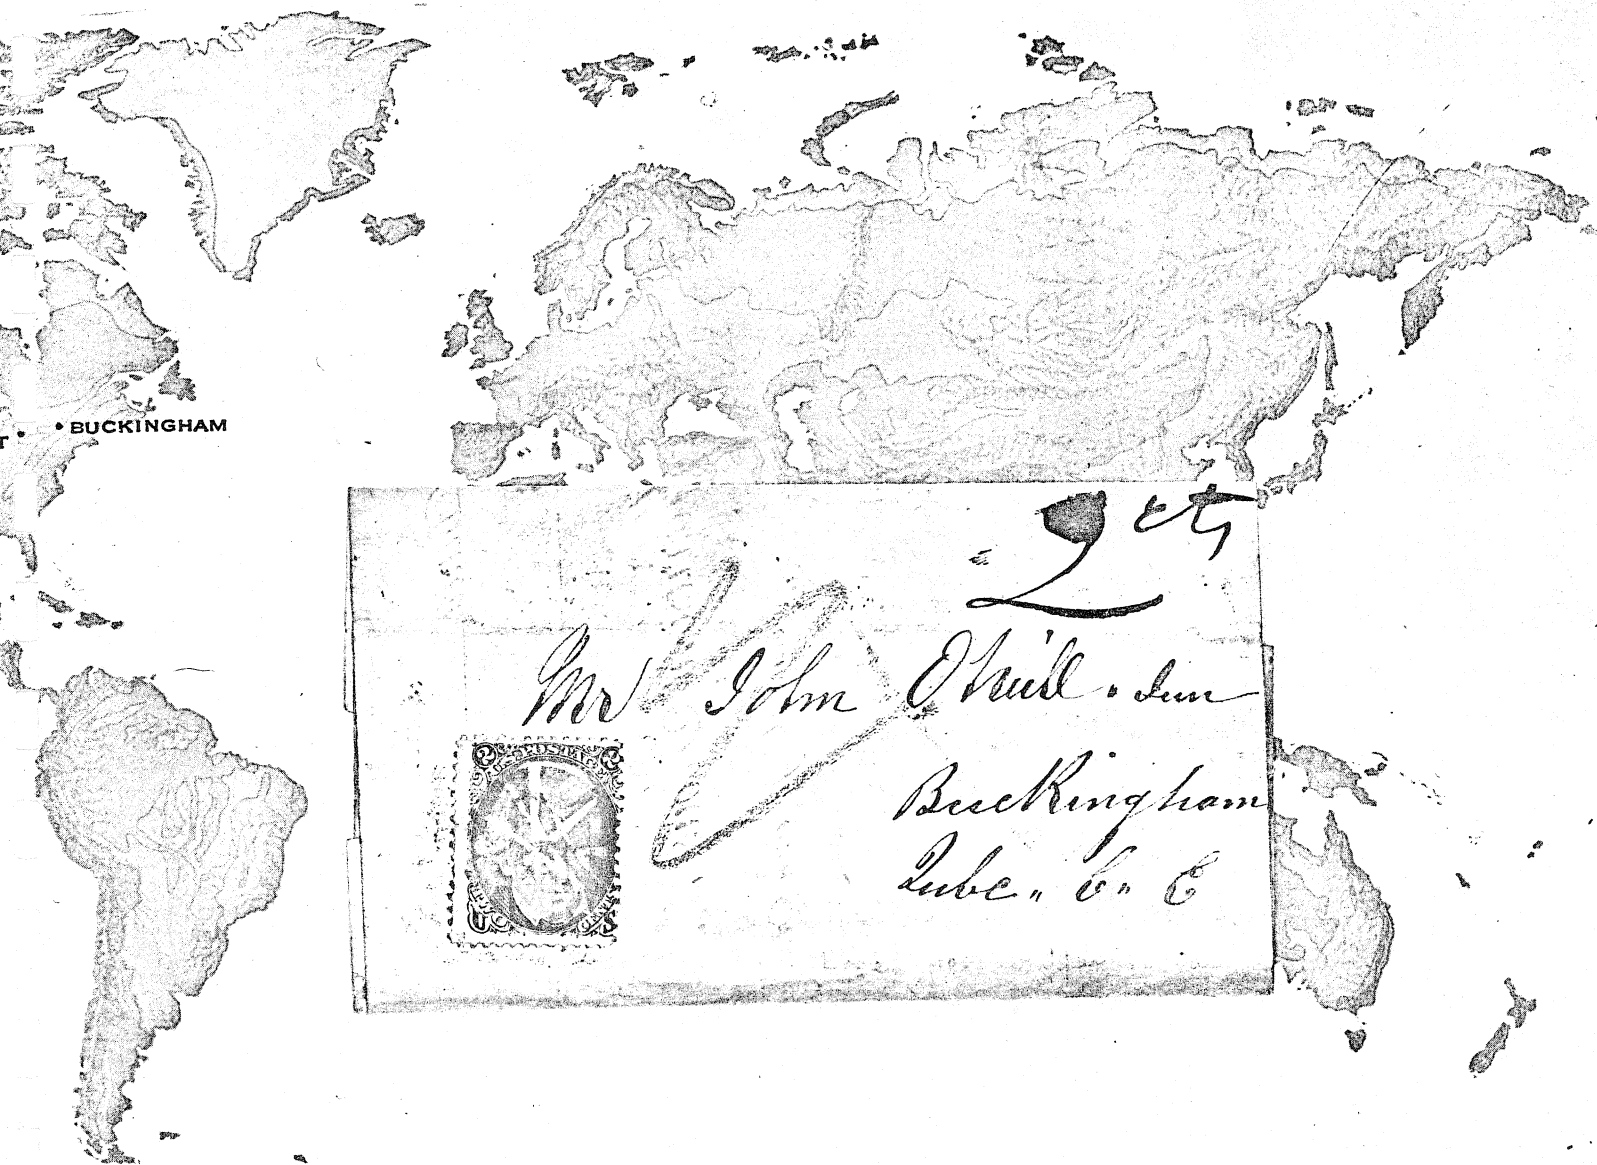 BUCKINGHAM
2 cts
Mr John O'Neill . Jun
Buckingham
Qube " C " E
2 2
U.S. POSTAGE
U S